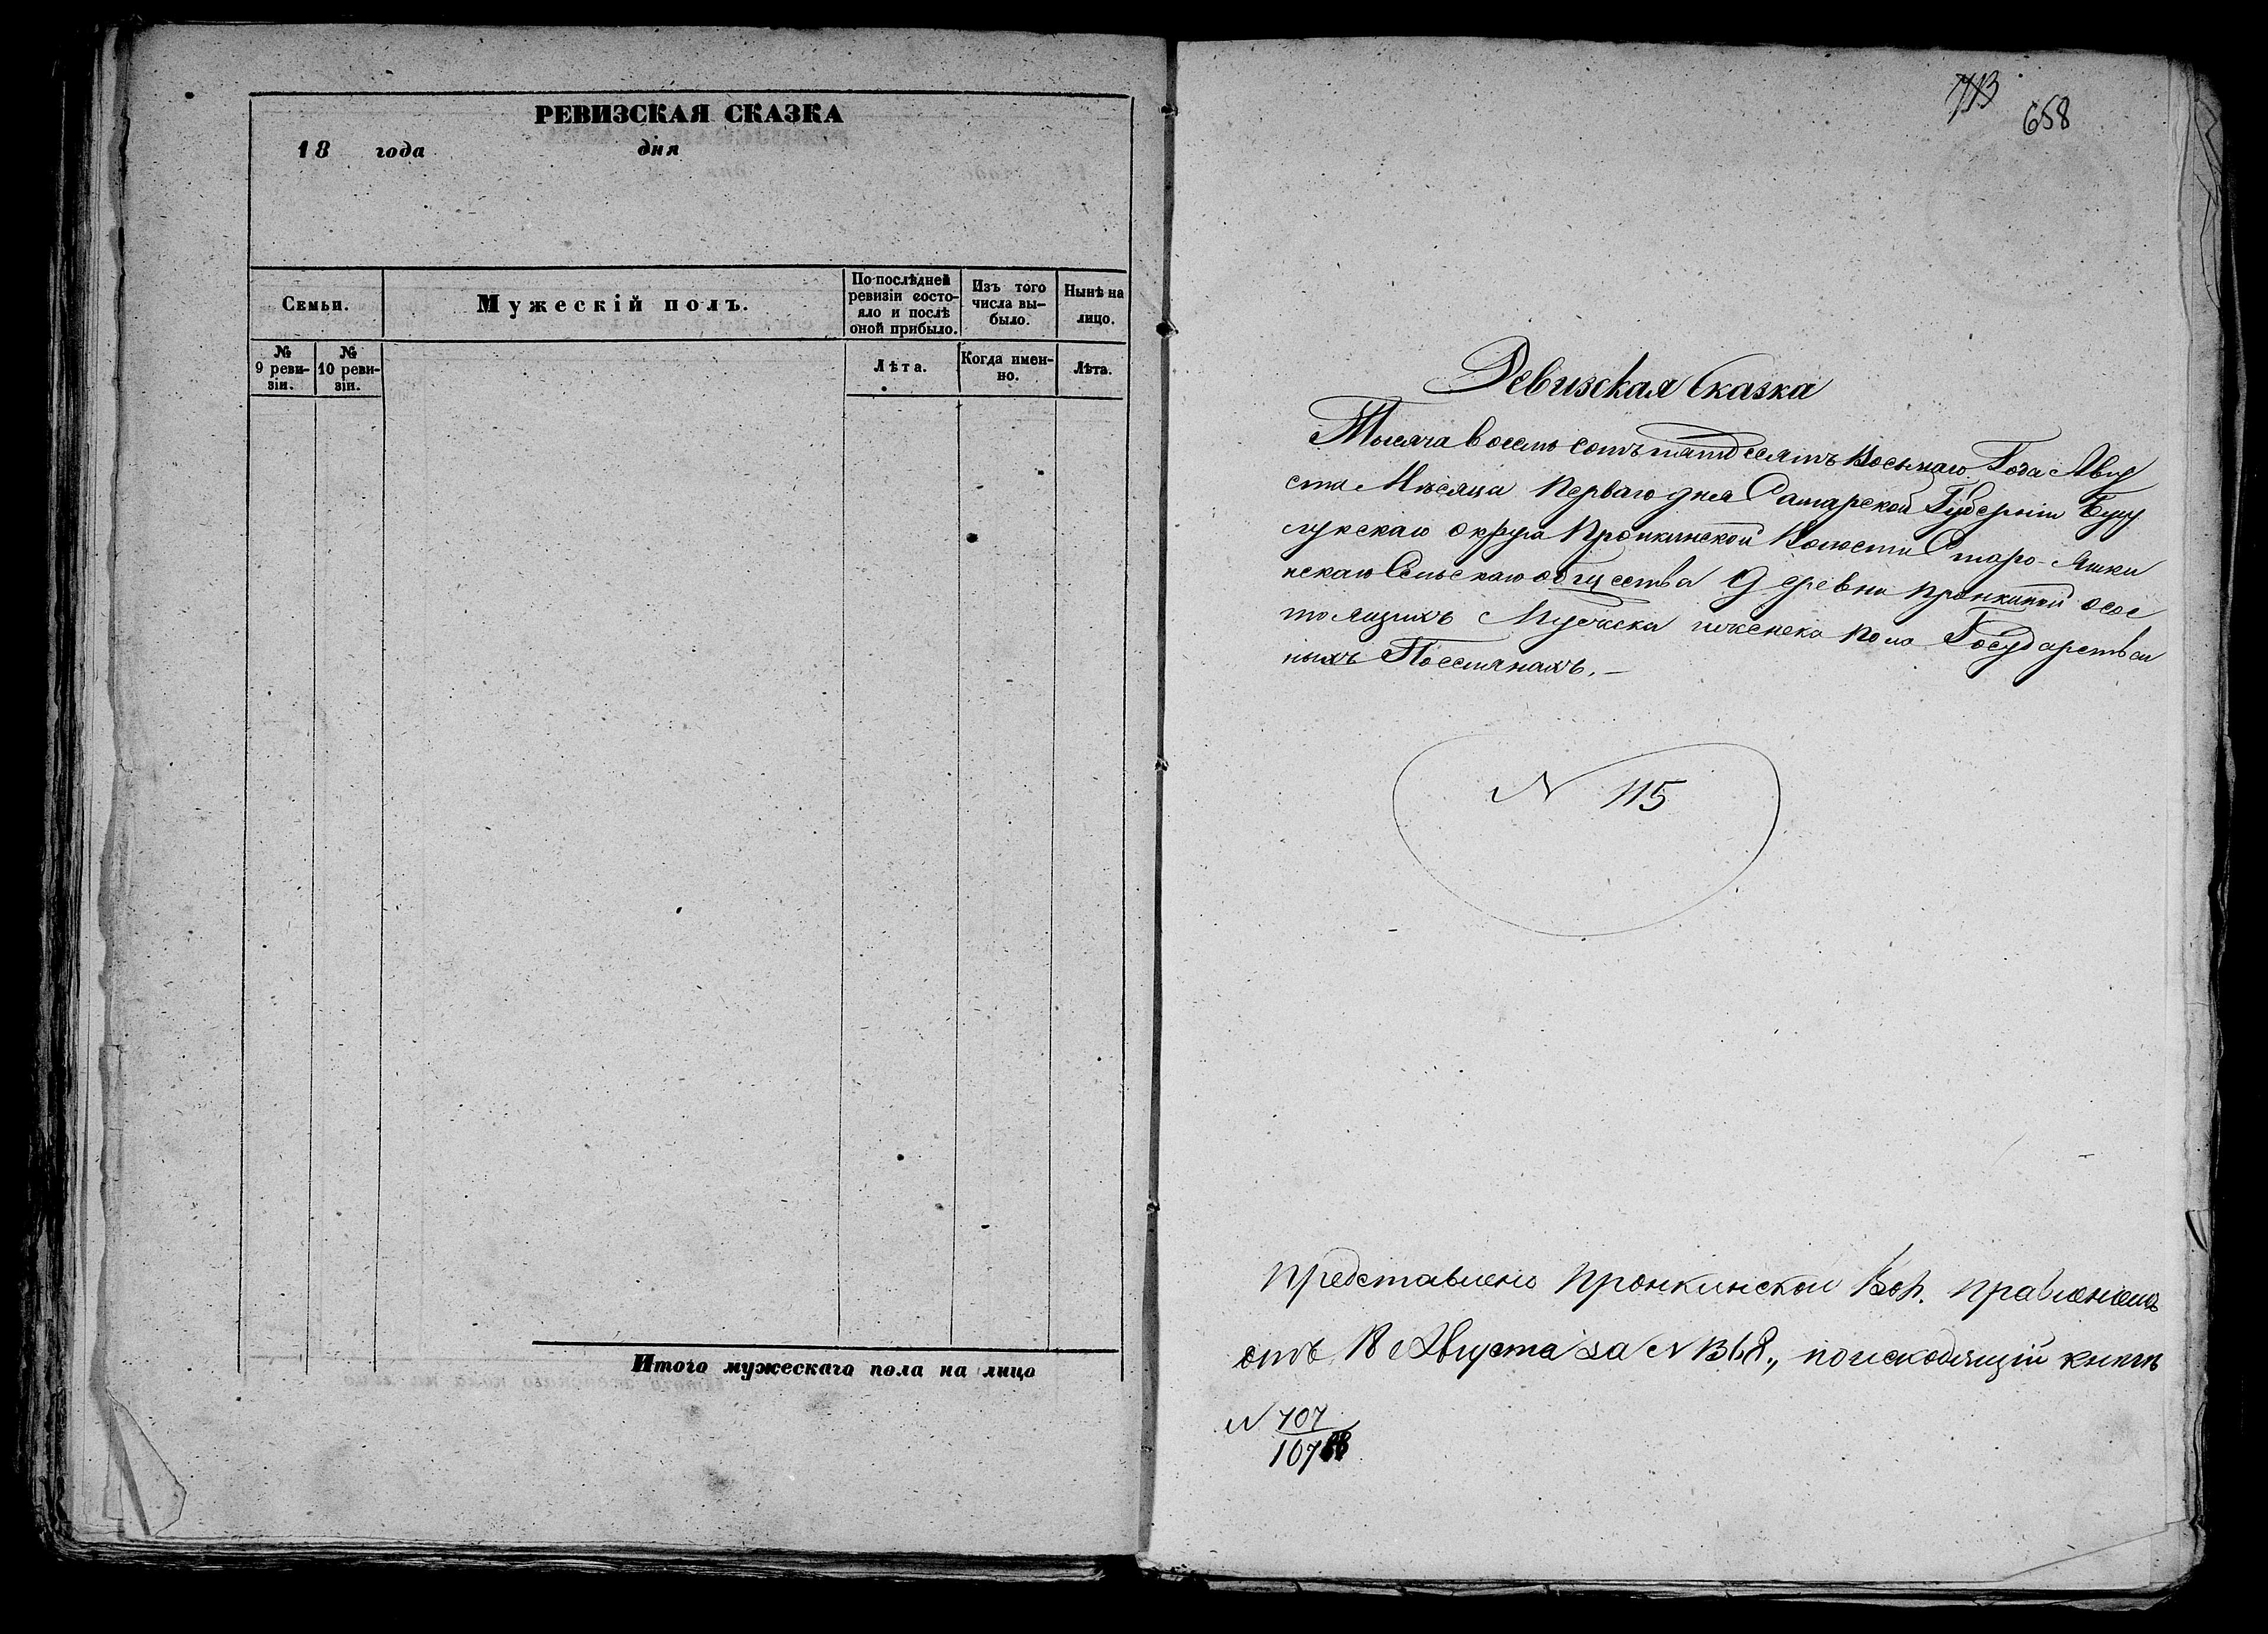 РЕВИЗСКАЯ СКАЗКА
18 года дня
Семьи.
Мужескій полъ.
По послѣдней
ревизіи состо-
яло и послѣ
оной прибыло.
Изъ того
числа вы-
было.
Нынѣ на
лицо.
№
9 реви-
зіи.
№
10 реви-
зіи.
Лѣта.
Когда имен-
но.
Лѣта.
Итого мужескаго пола на лицо
713
658
Ревизская Сказка
Тысяча восемь сотъ пятдесятъ Восьмаго Года Авгу
ста Мѣсяца Перваго дня Самарской Губерніи Бузу
лукскаго округа Пронкинской Волости Старо-Яшки
нскаго Сельскаго общества Деревни Пронкиной осос
тоящихъ Мужеска иженска пола Государствен
ныхъ Поселянахъ.—
N 115
Представлено Пронкинской Вол. правленіемъ
отъ 18 Августа за N 1368, поисходящій книгѣ
N 707